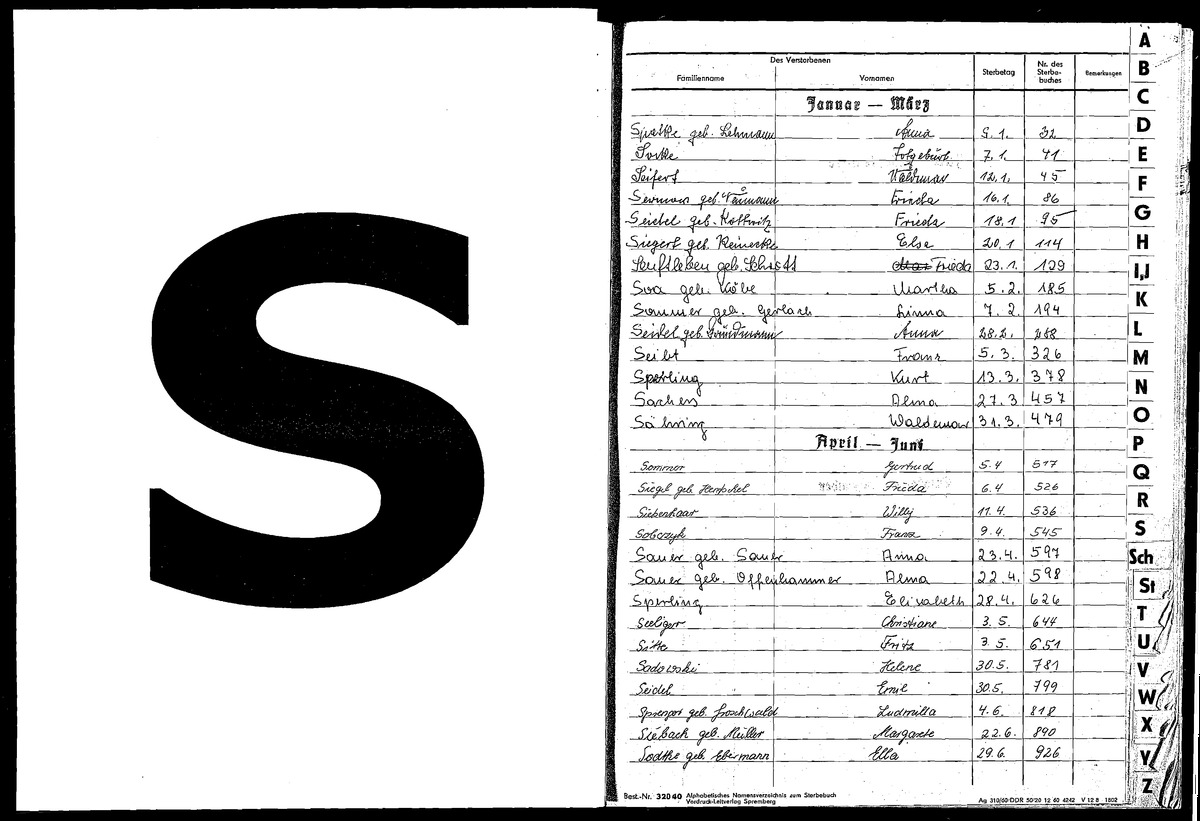 S
Des Verstorbenen
Familienname Vornamen Sterbetag Nr. des Sterbe-buches Bemerkungen
Januar — März
geb. Lehmann Anna 5.1. 32
Totgeburt 7.1. 41
Seifert Waldemar 12.1. 45
geb. Naumann Frieda 16.1. 86
Seidel geb. Kottwitz Frieda 18.1 95
Siegert geb. Reinecke Else 20.1 114
Senftleben geb. Schrott Frieda 23.1. 129
geb. Martha 5.2. 185
Sommer geb. Gerlach Linna 7.2. 194
Seidel geb. Grundmann Anna 28.2. 288
Seibt Franz 5.3. 326
Sperling Kurt 13.3. 378
Sachers Alma 27.3 457
Sähring Waldemar 31.3. 479
April — Juni
Sommer Gertrud 5.4 517
Siegel geb. Hentschel Frieda 6.4 526
Siebenhaar Willy 11.4. 536
Sobczyk Franz 9.4. 545
Sauer geb. Sauer Anna 23.4. 597
Sauer geb. Offenhammer Alma 22.4. 598
Sperling Elisabeth 28.4. 626
Seeliger Christiane 3.5. 644
Sitte Fritz 3.5. 651
Sadowski Helene 30.5. 781
Seidel Emil 30.5. 799
geb. Froschwald Ludmilla 4.6. 818
Sieback geb. Müller Margarete 22.6. 890
Sodtke geb. Ebermann Ella 29.6. 926
Best.-Nr. 32040 Alphabetisches Namensverzeichnis zum Sterbebuch
Vordruck-Leitverlag Spremberg
Ag 310/60 DDR 50 20 12 60 4242 V 12 8 1802
A
B
C
D
E
F
G
H
I,J
K
L
M
N
O
P
Q
R
S
Sch
St
T
U
V
W
X
Y
Z